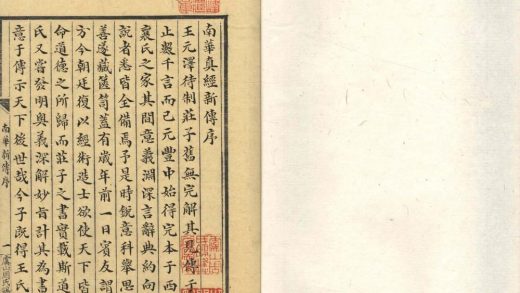 南華真經新傳序
王元澤待制莊子舊無完解其見傳于
止數千言而已元豐中始得完本于西
襄氏之家其間意義淵深言辭典約向
說者悉皆全備焉予是時銳意科舉思
善遂藏篋笥蓋有歲年前一日賓友謂
方今朝廷復以經術造士欲使天下
命道德之所歸而莊子之書實載斯道
氏又嘗發明奧義深解妙旨計其為書
意于傳示天下後世哉今子既得王氏
南華新傳序
一